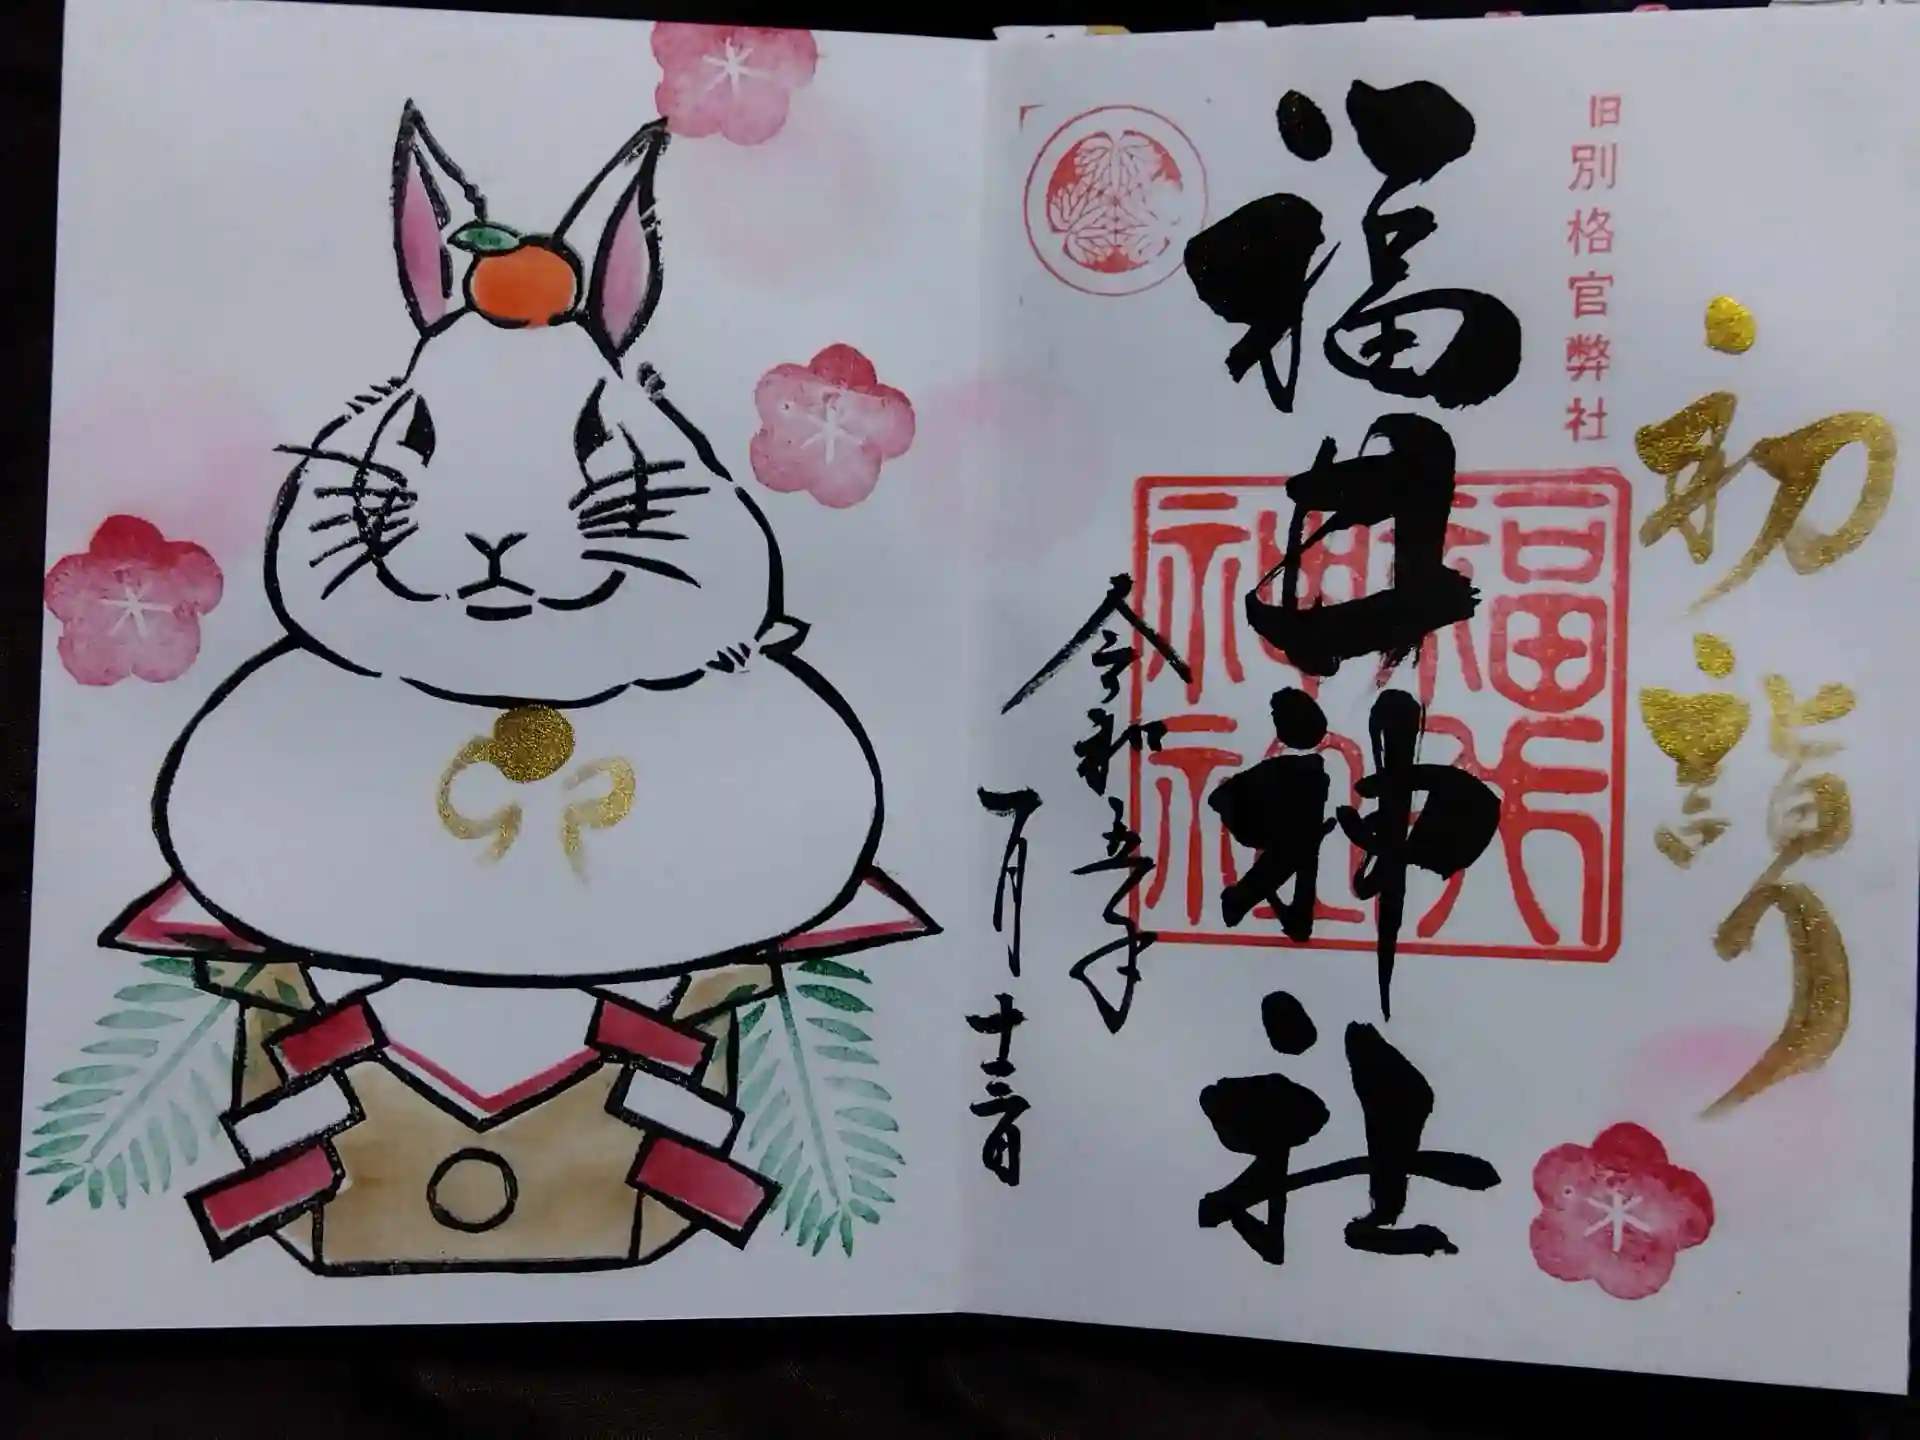 初詣り
旧別格官弊社
福井神社
福井神社
令和五年
一月十三日
卯